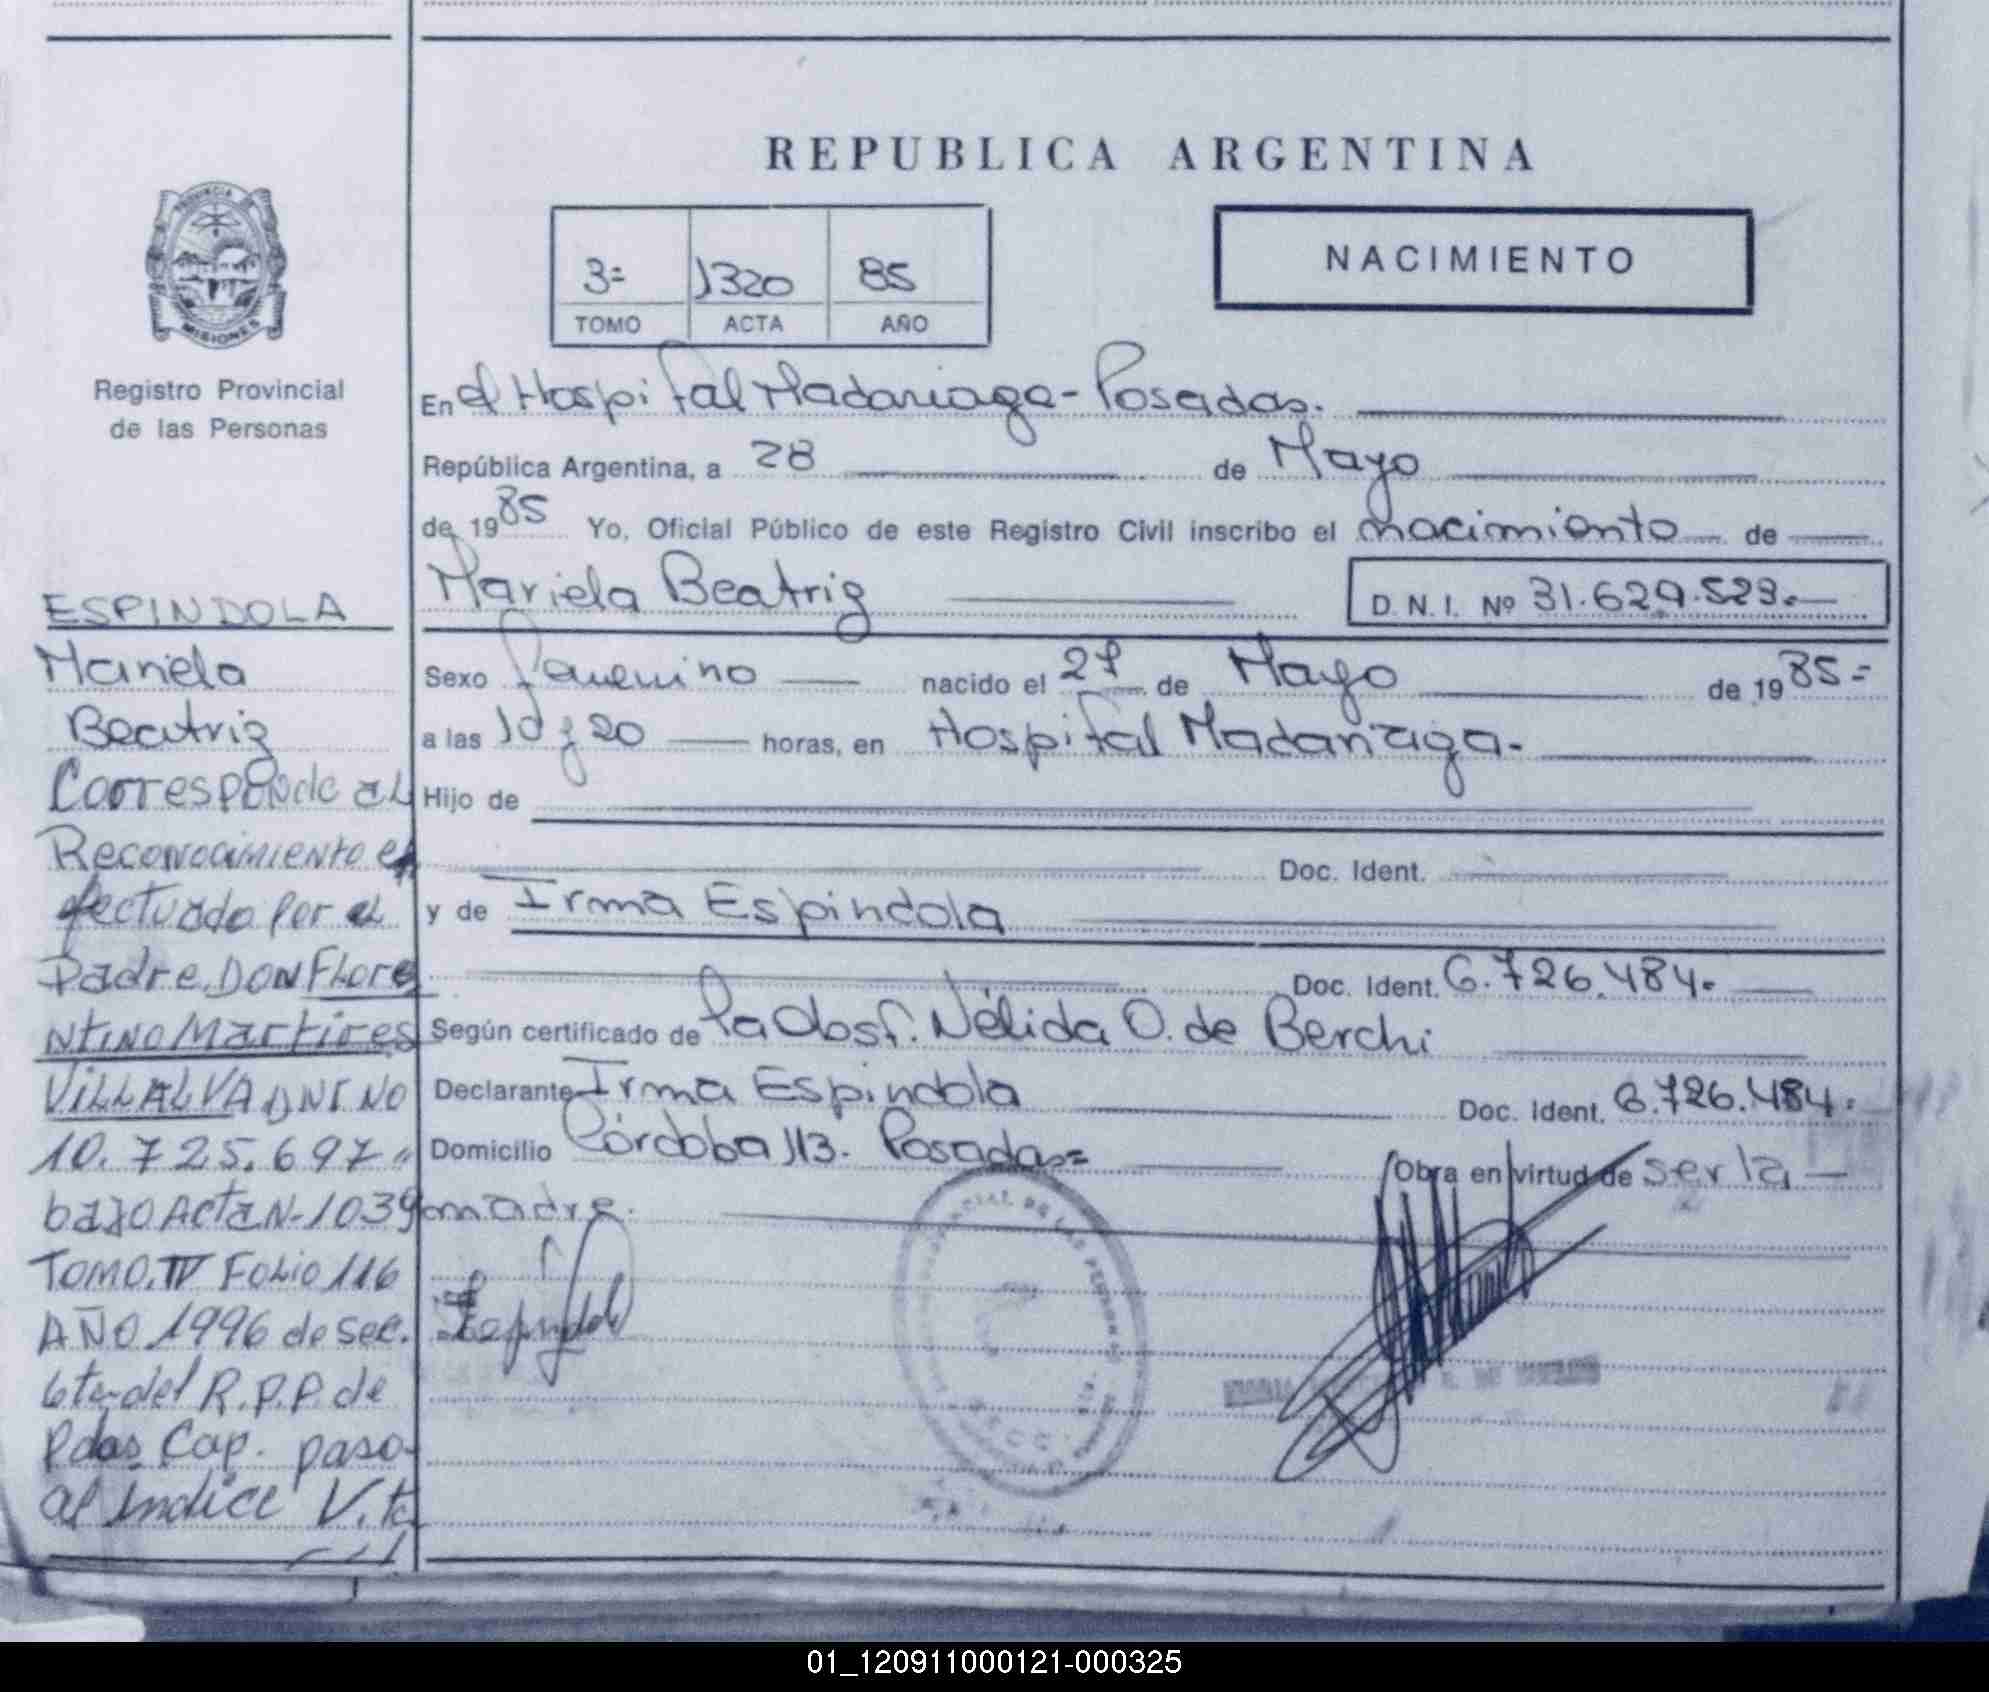 REPUBLICA ARGENTINA
PROVINCIA
MISIONES
Registro Provincial
de las Personas
3= 1320 85
TOMO ACTA AÑO
NACIMIENTO
En el Hospital Madariaga - Posadas.
República Argentina, a 28 de Mayo
de 1985 Yo, Oficial Público de este Registro Civil inscribo el nacimiento de
Mariela Beatriz D.N.I. Nº 31.629.523.-
Sexo femenino nacido el 27 de Mayo de 1985=
a las 10 y 20 horas, en Hospital Madariaga.-
Hijo de
Doc. Ident.
y de Irma Espindola
Doc. Ident. 6.726.484.
Según certificado de la Obst. Nélida O. de Berchi
Declarante Irma Espindola Doc. Ident. 6.726.484.
Domicilio Córdoba 113. Posadas= Obra en virtud de ser la
madre.
ESPINDOLA
Mariela
Beatriz
Corresponde al
Reconocimiento
efectuado por el
Padre, DON Flore
ntino Martires
VILLALVA DNI NO
10.725.697
bajo Acta N-1039
TOMO.IV Folio 116
AÑO 1996 de sec.
6ta del R.P.P. de
Pdas Cap. paso
al Indice V.
01_120911000121-000325